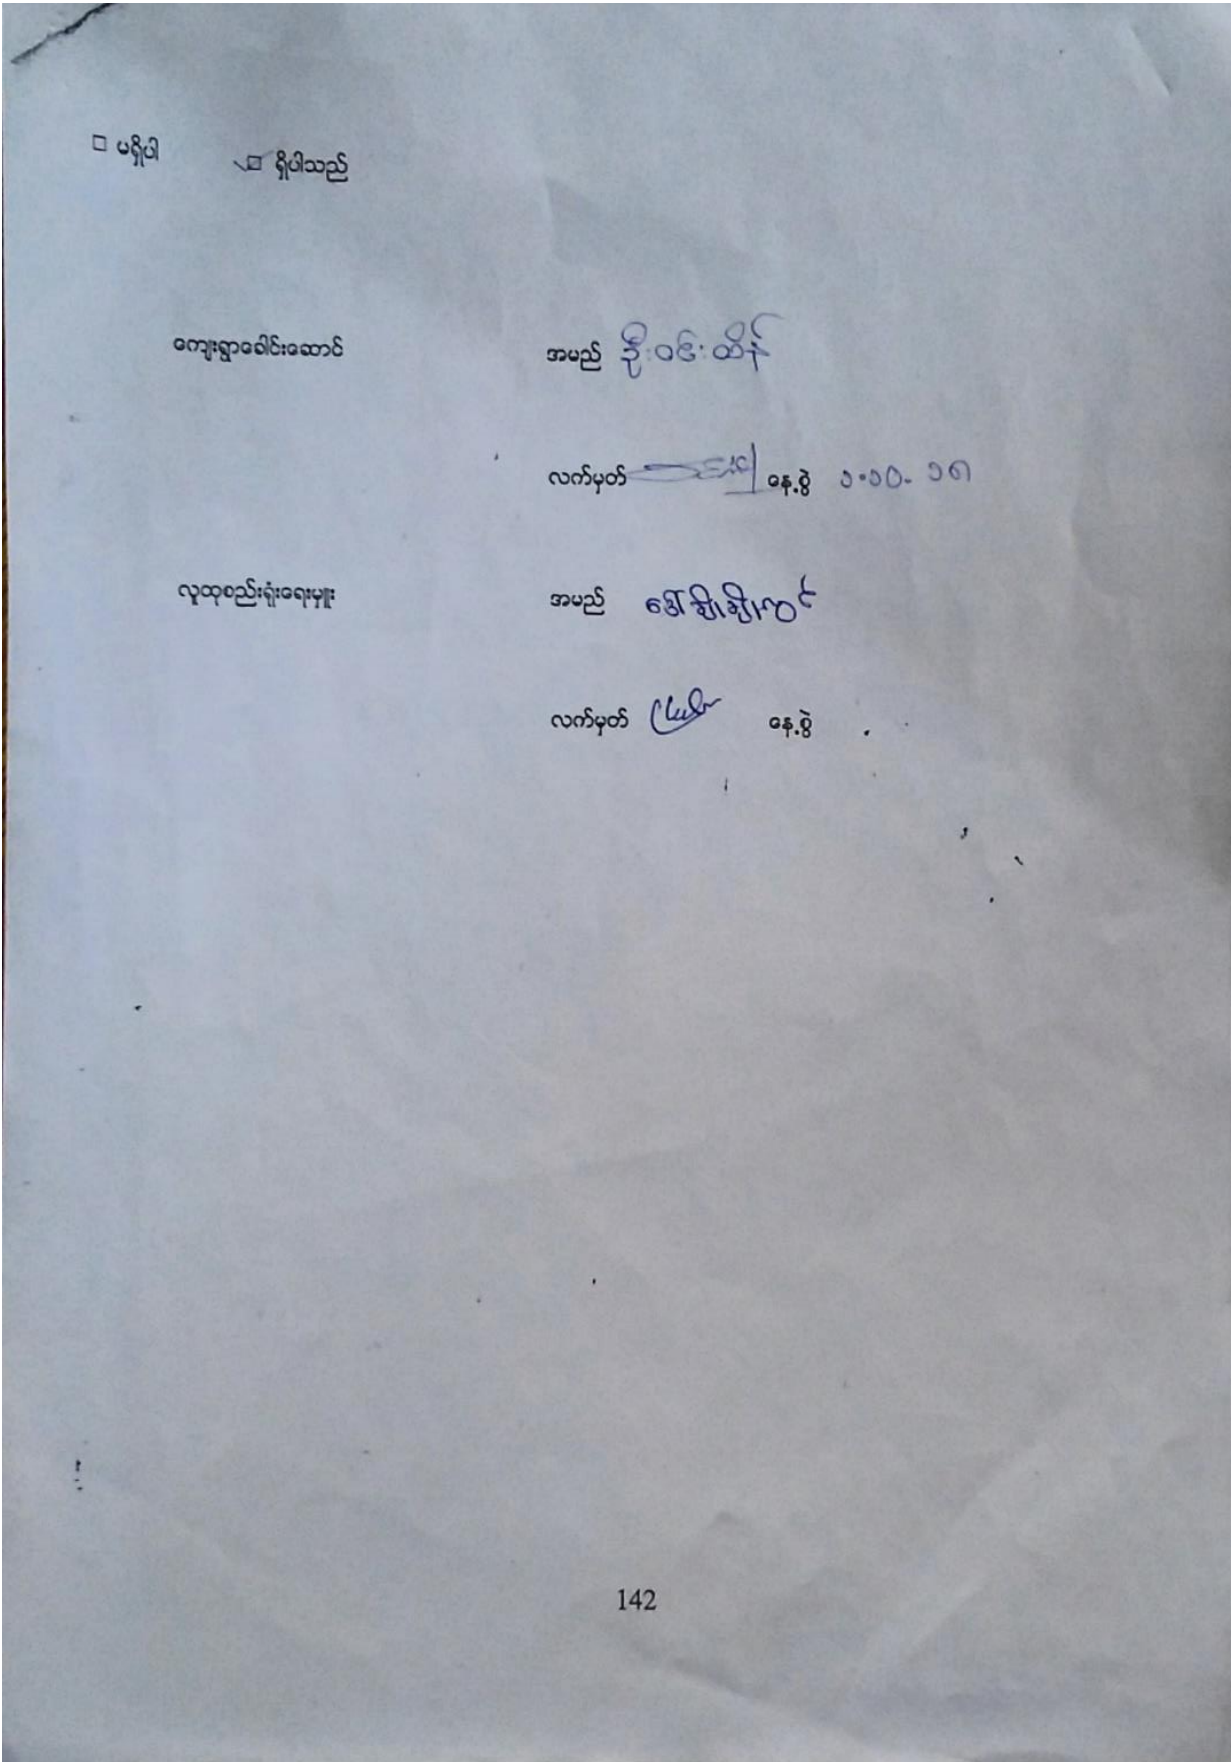 □ မရှိပါ □ ရှိပါသည်
ကျေးရွာခေါင်းဆောင် အမည် ဦးဝင်းထိန်
လက်မှတ် နေ့စွဲ ၁.၁၀.၁၈
လူထုစည်းရုံးရေးမှူး အမည် ဒေါ်ချိုချိုလွင်
လက်မှတ် နေ့စွဲ
142